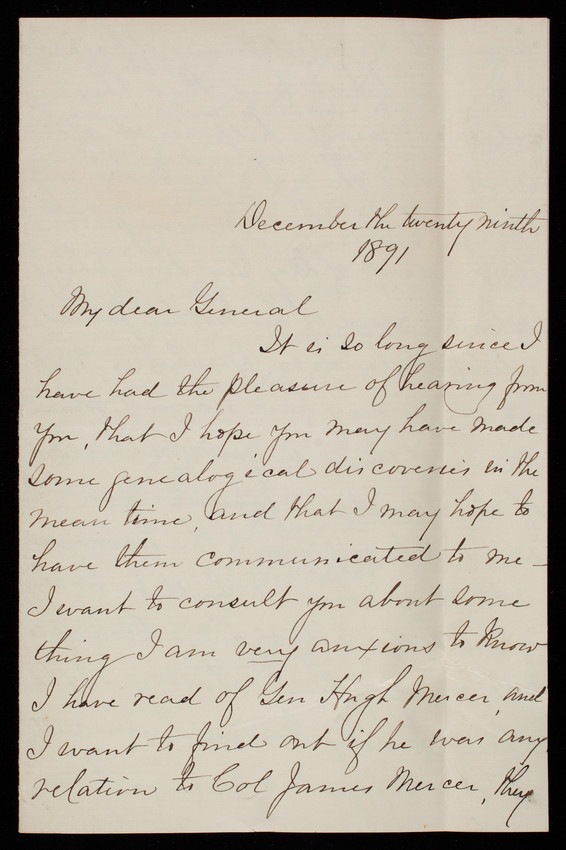 December the twenty ninth
1891
My dear General
It is so long since I
have had the pleasure of hearing from
you, that I hope you may have made
some genealogical discoveries in the
mean time, and that I may hope to
have them communicated to me -
I want to consult you about some
thing I am very anxious to know
I have read of Gen Hugh Mercer, and
I want to find out if he was any
relation to Col James Mercer, they